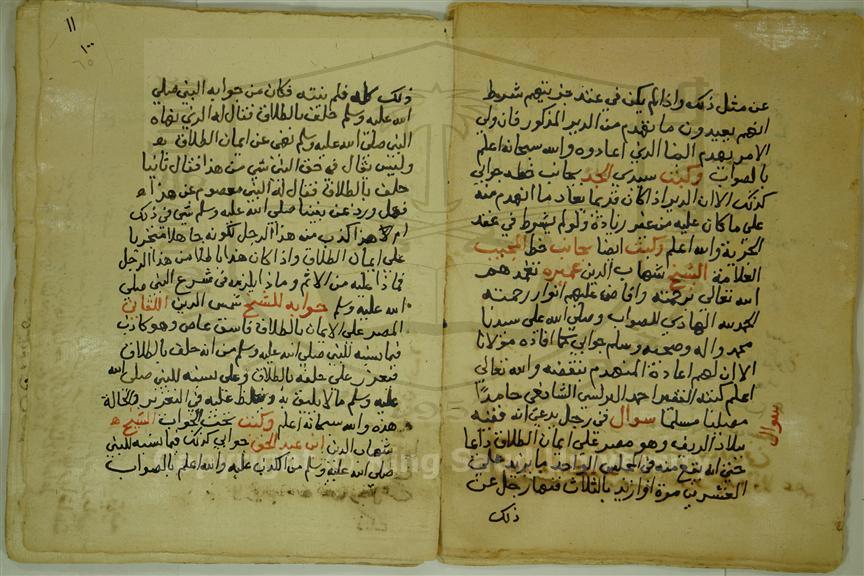 عن مثل ذلك واذا لم يكن في عقد جزيتهم شروط
انهم يعيدون ما تهدم من الدير المذكور فان ولي
الامر يهدم البنا الذي اعادوه والله سبحانه اعلم
بالصواب وكتب سيدي الجد بجانب خطه جوابي
كذلك الا ان الدير اذا كان قديما يعاد ما انهدم منه
على ما كان عليه من غير زيادة ولو لم يشرط في عقد
الجزية والله اعلم وكتب ايضا بجانب خط المجيب
العلامة الشيخ شهاب الدين عميره تغمدهم
الله تعالى برحمته وافاض عليهم انوار رحمته
الحمد لله الهادي للصواب وصلى الله على سيدنا
محمد واله وصحبه وسلم جوابي كما افاده مولانا
الا ان لهم اعادة المنهدم بنقضه والله تعالى
اعلم كتبه الفقير احمد البرلسي الشافعي حامدا
مصليا مسلما سوال في رجل يدعي انه فقيه
سوال
ببلاد الريف وهو مصر على ايمان الطلاق دايما
حتى انه يقع منه في المجلس الواحد ما يزيد على
العشرين مرة او ازيد بالثلاث فنهاه رجل عن
ذلك
١١
١٠٠
٦٥
ذلك كله فلم ينته فكان من جوابه النبي صلى
الله عليه وسلم حلف بالطلاق فقال له الذي نهاه
النبي صلى الله عليه وسلم نهى عن ايمان الطلاق
وليس يقال في حق النبي شي من هذا فقال ثانيا
حلف بالطلاق فقال له النبي معصوم عن هذا
فهل ورد عن نبينا صلى الله عليه وسلم شي في ذلك
ام لا هذا كذب من هذا الرجل لكونه جاهلا متجريا
على ايمان الطلاق واذا كان هذا باطلا من هذا الرجل
فماذا عليه من الاثم وماذا يلزمه في شرع النبي صلى
الله عليه وسلم جوابه للشيخ شمس الدين اللقاني
المصر على الايمان بالطلاق فاسق عاص وهو كاذب
فيما نسبه للنبي صلى الله عليه وسلم من انه حلف بالطلاق
فيعزر على حلفه بالطلاق وعلى نسبته للنبي صلى الله
عليه وسلم ما لا يليق به ويغلظ عليه في التعزير والحالة
هذه والله سبحانه اعلم وكتب تحت الجواب الشيخ
شهاب الدين ابن عبد الحق جوابي كذلك فيما نسبه للنبي
صلى الله عليه وسلم من الكذب عليه والله اعلم بالصواب